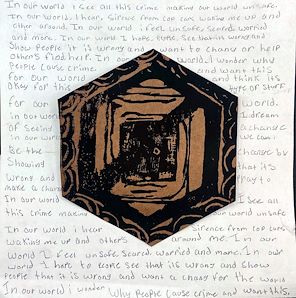 In our world I see all this crime making our world unsafe.
In our world I hear, sirence from cop cars waking me up and
other around. In our world i feel unsafe, scared, worried
and more. In our world I hope, people, see that its wrong and
Show people it is wrong and want to chang or help
others find help. In our world I wonder why
People cause crime and want this
for our world and think its
okey for this type of stuff
for our world.
In our world I dream
of seeing a chance
Be the
Showing that its
wrong and pay to
make a chan
In our World I see all
this crime making our world unsafe
In our world i hear sirence from cop cars
waking me up and others around me. In our
world I feel unsafe. Scared. worried and more. In our
world I hope to people see that its wrong and show
people that it is wrong and want a chang for the world
In our world I wonder Why people cause crime and want this.